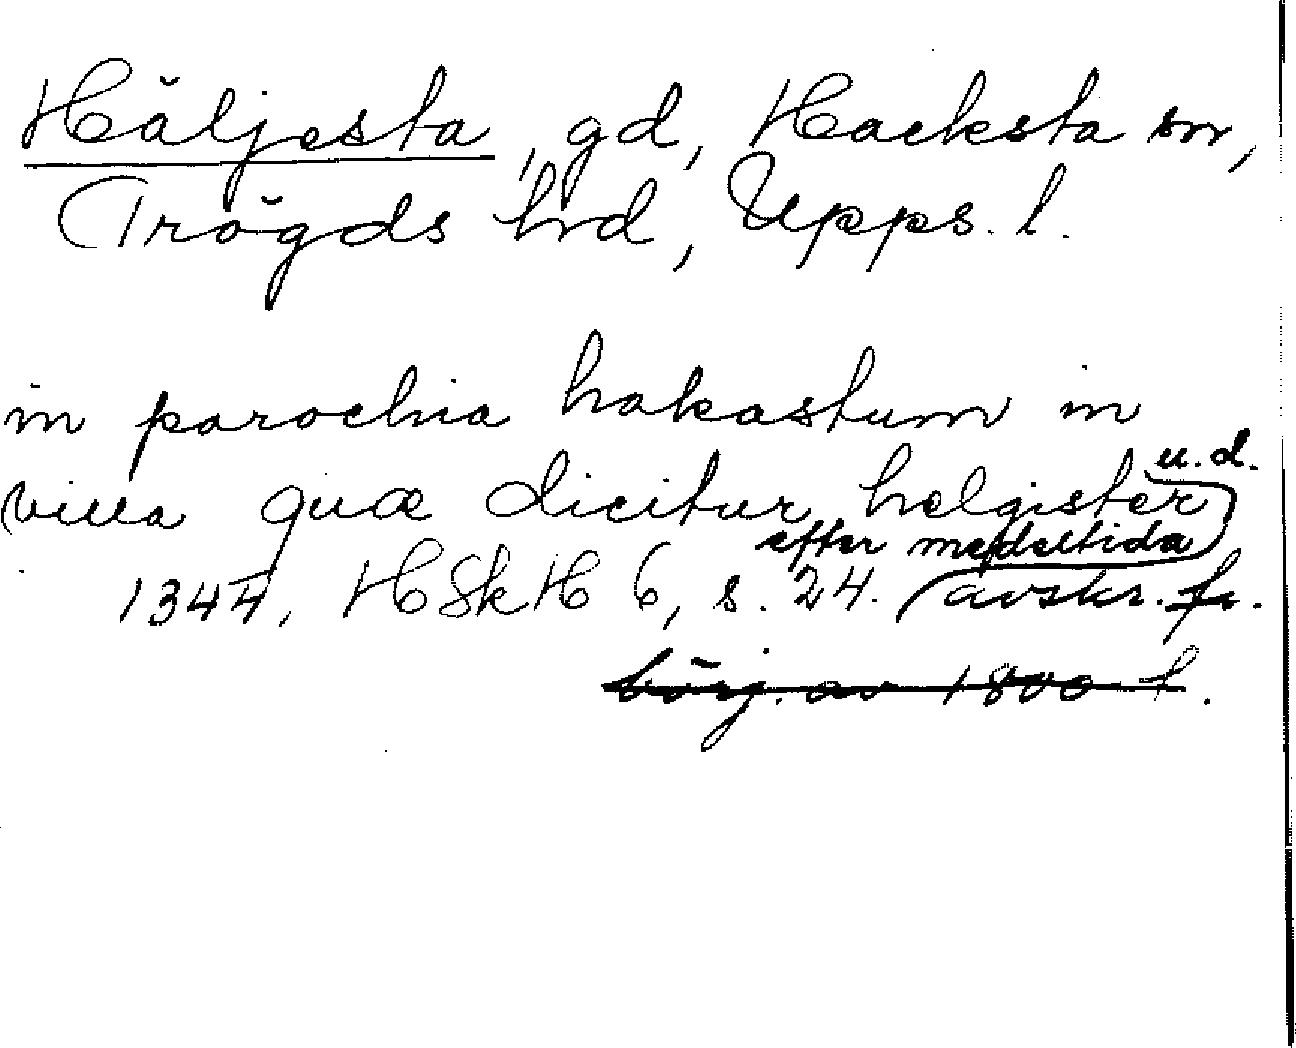 Häljesta, gd, Hacksta sn,
Trögds hrd, Upps. l.
in parochia hakastum in
villa quæ dicitur helgister
u.d.
efter medeltida
1344, HSkH 6, s. 24. avskr. fr.
börj. av 1800 t.